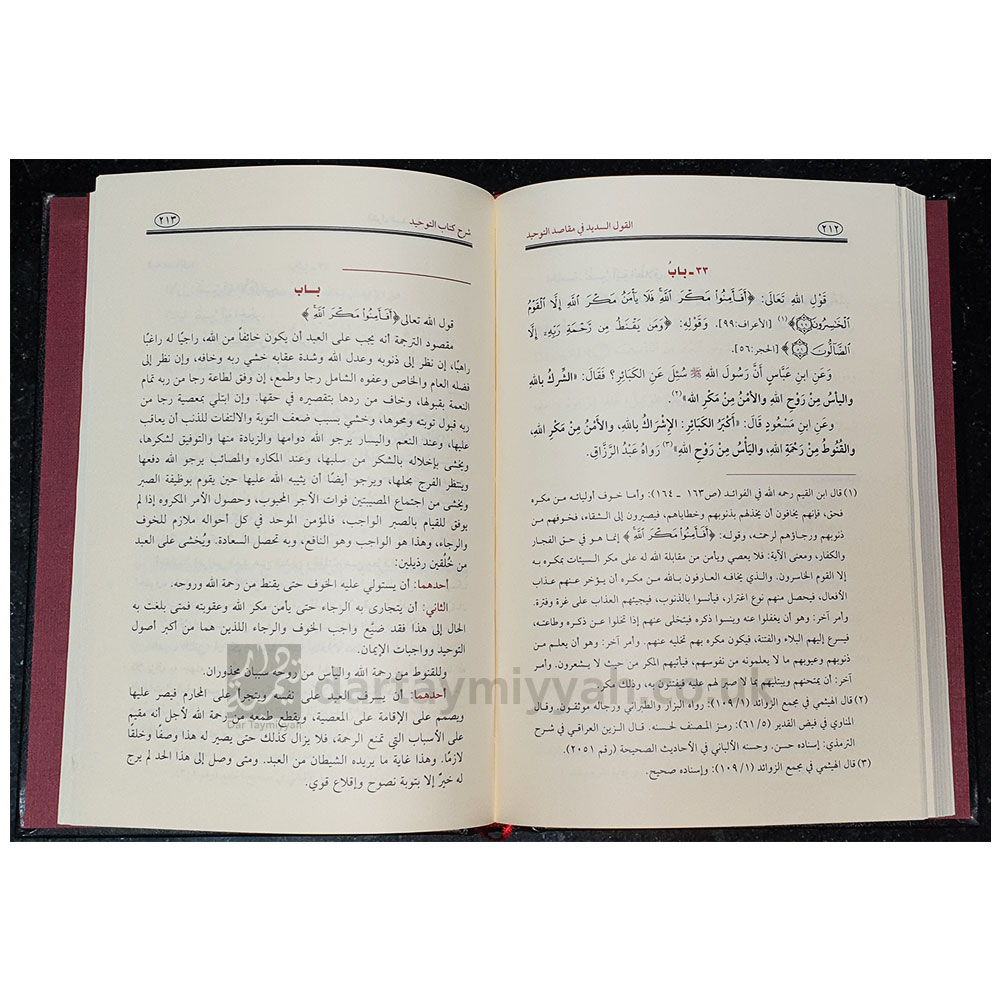 القول السديد في مقاصد التوحيد
٢١٢
٣٣ ـ بابُ
قَوْلِ اللهِ تَعَالَى: ﴿أَفَأَمِنُوا۟ مَكْرَ ٱللَّهِ ۚ فَلَا يَأْمَنُ مَكْرَ ٱللَّهِ إِلَّا ٱلْقَوْمُ
ٱلْخَـٰسِرُونَ ٩٩﴾(١) [الأعراف: ٩٩]. وَقَوْلِهِ: ﴿وَمَن يَقْنَطُ مِن رَّحْمَةِ رَبِّهِۦٓ إِلَّا
ٱلضَّآلُّونَ ٥٦﴾ [الحجر: ٥٦].
وَعَنِ ابنِ عَبَّاسٍ أَنَّ رَسُولَ اللهِ ﷺ سُئِلَ عَنِ الكَبَائِرِ؟ فَقَالَ: «الشِّركُ باللهِ
والیأسُ مِنْ رَوْحِ اللهِ والأمْنُ مِنْ مَكْرِ الله»(٢).
وعَنِ ابنِ مَسْعُودٍ قَالَ: «أَكْبَرُ الكَبَائِرِ: الإِشْرَاكُ باللهِ، والأَمْنُ مِنْ مَكْرِ اللهِ،
والقُنُوطُ مِنْ رَحْمَةِ اللهِ، واليَأْسُ مِنْ رَوْحِ اللهِ»(٣) رَوَاهُ عَبْدُ الرَّزَّاقِ.
(١) قال ابن القيم رحمه الله في الفوائد (ص١٦٣ ـ ١٦٤): وأما خوف أوليائه من مكره
فحق، فإنهم يخافون أن يخذلهم بذنوبهم وخطاياهم، فيصيرون إلى الشقاء، فخوفهم من
ذنوبهم ورجاؤهم لرحمته، وقوله: ﴿أَفَأَمِنُوا۟ مَكْرَ ٱللَّهِ﴾ إنما هو في حق الفجار
والكفار، ومعنى الآية: فلا يعصي ويأمن من مقابلة الله له على مكر السيئات بمكره به
إلا القوم الخاسرون. والذي يخافه العارفون بالله من مكره أن يؤخر عنهم عذاب
الأفعال، فيحصل منهم نوع اغترار، فيأنسوا بالذنوب، فيجيئهم العذاب على غرة وفترة.
وأمر آخر: وهو أن يغفلوا عنه وينسوا ذكره فيتخلى عنهم إذا تخلوا عن ذكره وطاعته،
فيسرع إليهم البلاء والفتنة، فيكون مكره بهم تخليه عنهم. وأمر آخر: وهو أن يعلم من
ذنوبهم وعيوبهم ما لا يعلمونه من نفوسهم، فيأتيهم المكر من حيث لا يشعرون. وأمر
آخر: أن يمتحنهم ويبتليهم بما لا صبر لهم عليه فيفتنون به، وذلك مكر.
(٢) قال الهيثمي في مجمع الزوائد (١/ ١٠٩): رواه البزار والطبراني ورجاله موثقون. وقال
المناوي في فيض القدير (٥/ ٦١): رمز المصنف لحسنه. قال الزين العراقي في شرح
الترمذي: إسناده حسن. وحسنه الألباني في الأحاديث الصحيحة (رقم ٢٠٥١).
(٣) قال الهيثمي في مجمع الزوائد (١/ ١٠٩): وإسناده صحيح.
شرح كتاب التوحيد
٢١٣
بـاب
قول الله تعالى ﴿أَفَأَمِنُوا۟ مَكْرَ ٱللَّهِ ۚ﴾
مقصود الترجمة أنه يجب على العبد أن يكون خائفاً من الله، راجيًا له راغبًا
راهبًا، إن نظر إلى ذنوبه وعدل الله وشدة عقابه خشي ربه وخافه، وإن نظر إلى
فضله العام والخاص وعفوه الشامل رجا وطمع، إن وفق لطاعة رجا من ربه تمام
النعمة بقبولها، وخاف من ردها بتقصيره في حقها. وإن ابتلي بمعصية رجا من
ربه قبول توبته ومحوها، وخشي بسبب ضعف التوبة والالتفات للذنب أن يعاقب
عليها، وعند النعم واليسار يرجو الله دوامها والزيادة منها والتوفيق لشكرها،
ويخشى بإخلاله بالشكر من سلبها، وعند المكاره والمصائب يرجو الله دفعها
وينتظر الفرج بحلها، ويرجو أيضًا أن يثيبه الله عليها حين يقوم بوظيفة الصبر
ويخشى من اجتماع المصيبتين فوات الأجر المحبوب، وحصول الأمر المكروه إذا لم
يوفق للقيام بالصبر الواجب، فالمؤمن الموحد في كل أحواله ملازم للخوف
والرجاء، وهذا هو الواجب وهو النافع، وبه تحصل السعادة. ويُخشى على العبد
من خُلُقين رذيلين:
أحدهما: أن يستولي عليه الخوف حتى يقنط من رحمة الله وروحه.
الثاني: أن يتجارى به الرجاء حتى يأمن مكر الله وعقوبته فمتى بلغت به
الحال إلى هذا فقد ضيَّع واجب الخوف والرجاء اللذين هما من أكبر أصول
التوحيد وواجبات الإيمان.
وللقنوط من رحمة الله واليأس من روحه سببان محذوران.
أحدهما: أن يسرف العبد على نفسه ويتجرأ على المحارم فيصر عليها
ويصمم على الإقامة على المعصية، ويقطع طمعه من رحمة الله لأجل أنه مقيم
على الأسباب التي تمنع الرحمة، فلا يزال كذلك حتى يصير له هذا وصفًا وخلقًا
لازمًا. وهذا غاية ما يريده الشيطان من العبد. ومتى وصل إلى هذا الحد لم يرج
له خيرٌ إلا بتوبة نصوح وإقلاع قوي.
Dar Taymiyyah
dartaymiyyah.co.uk